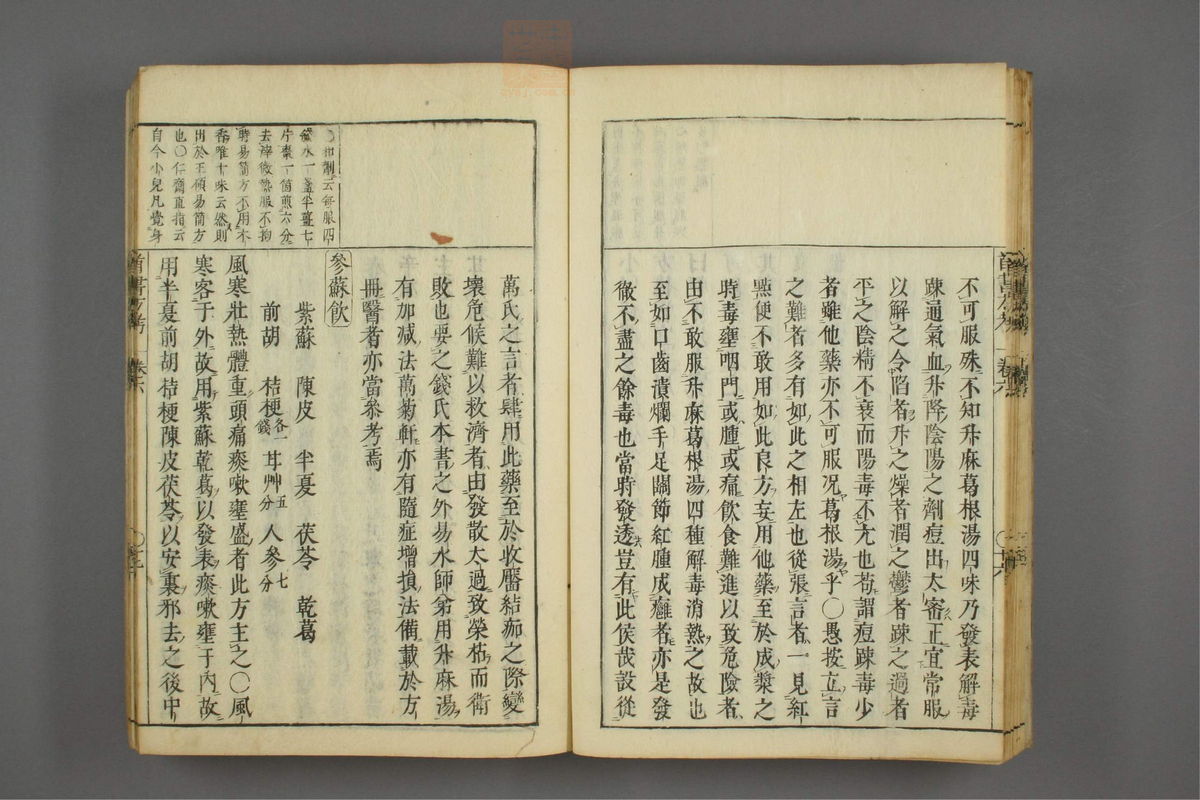 不可服殊不知升麻葛根湯四味乃發表解毒
踈通氣血升降陰陽之劑痘出太密正宜常服
以解之令陷者升之燥者潤之鬱者踈之過者
平之陰精不衰而陽毒不亢也苟謂痘踈毒少
者雖他藥亦不可服况葛根湯乎〇愚按立言
之難者多有如此之相左也從張言者一見紅
㸃便不敢用如此良方妄用他藥至於成漿之
時毒壅咽門或腫或瘡飲食難進以致危險者
由不敢服升麻葛根湯四種解毒消熱之故也
至如口齒潰爛手足關節紅腫成癰者亦是發
徹不盡之餘毒也當時發透豈有此侯哉設從
萬氏之言者肆用此藥至於收靨結痂之際變
壞危候難以救濟者由發散太過致榮枯而衛
敗也要之錢氏本書之外易水師弟用升麻湯
有加減法萬菊軒亦有隨症增損法備載於方
冊醫者亦當參考焉
參蘇飲
紫蘇 陳皮 半夏 茯苓 乾葛
前胡 桔梗各一錢 甘艸五分 人參七分
風寒壯熱體重頭痛痰嗽壅盛者此方主之〇風
寒客于外故用紫蘇乾葛以發表痰嗽壅于內故
用半夏前胡桔梗陳皮茯苓以安裏邪去之後中
〇和劑云每服四
錢水一盞半薑七
片棗一箇煎六分
去滓微熱服不拘
時易簡方不用木
香唯十味云然則
出於王碩易簡方
也〇仁齋直指云
自今小兒凡覺身